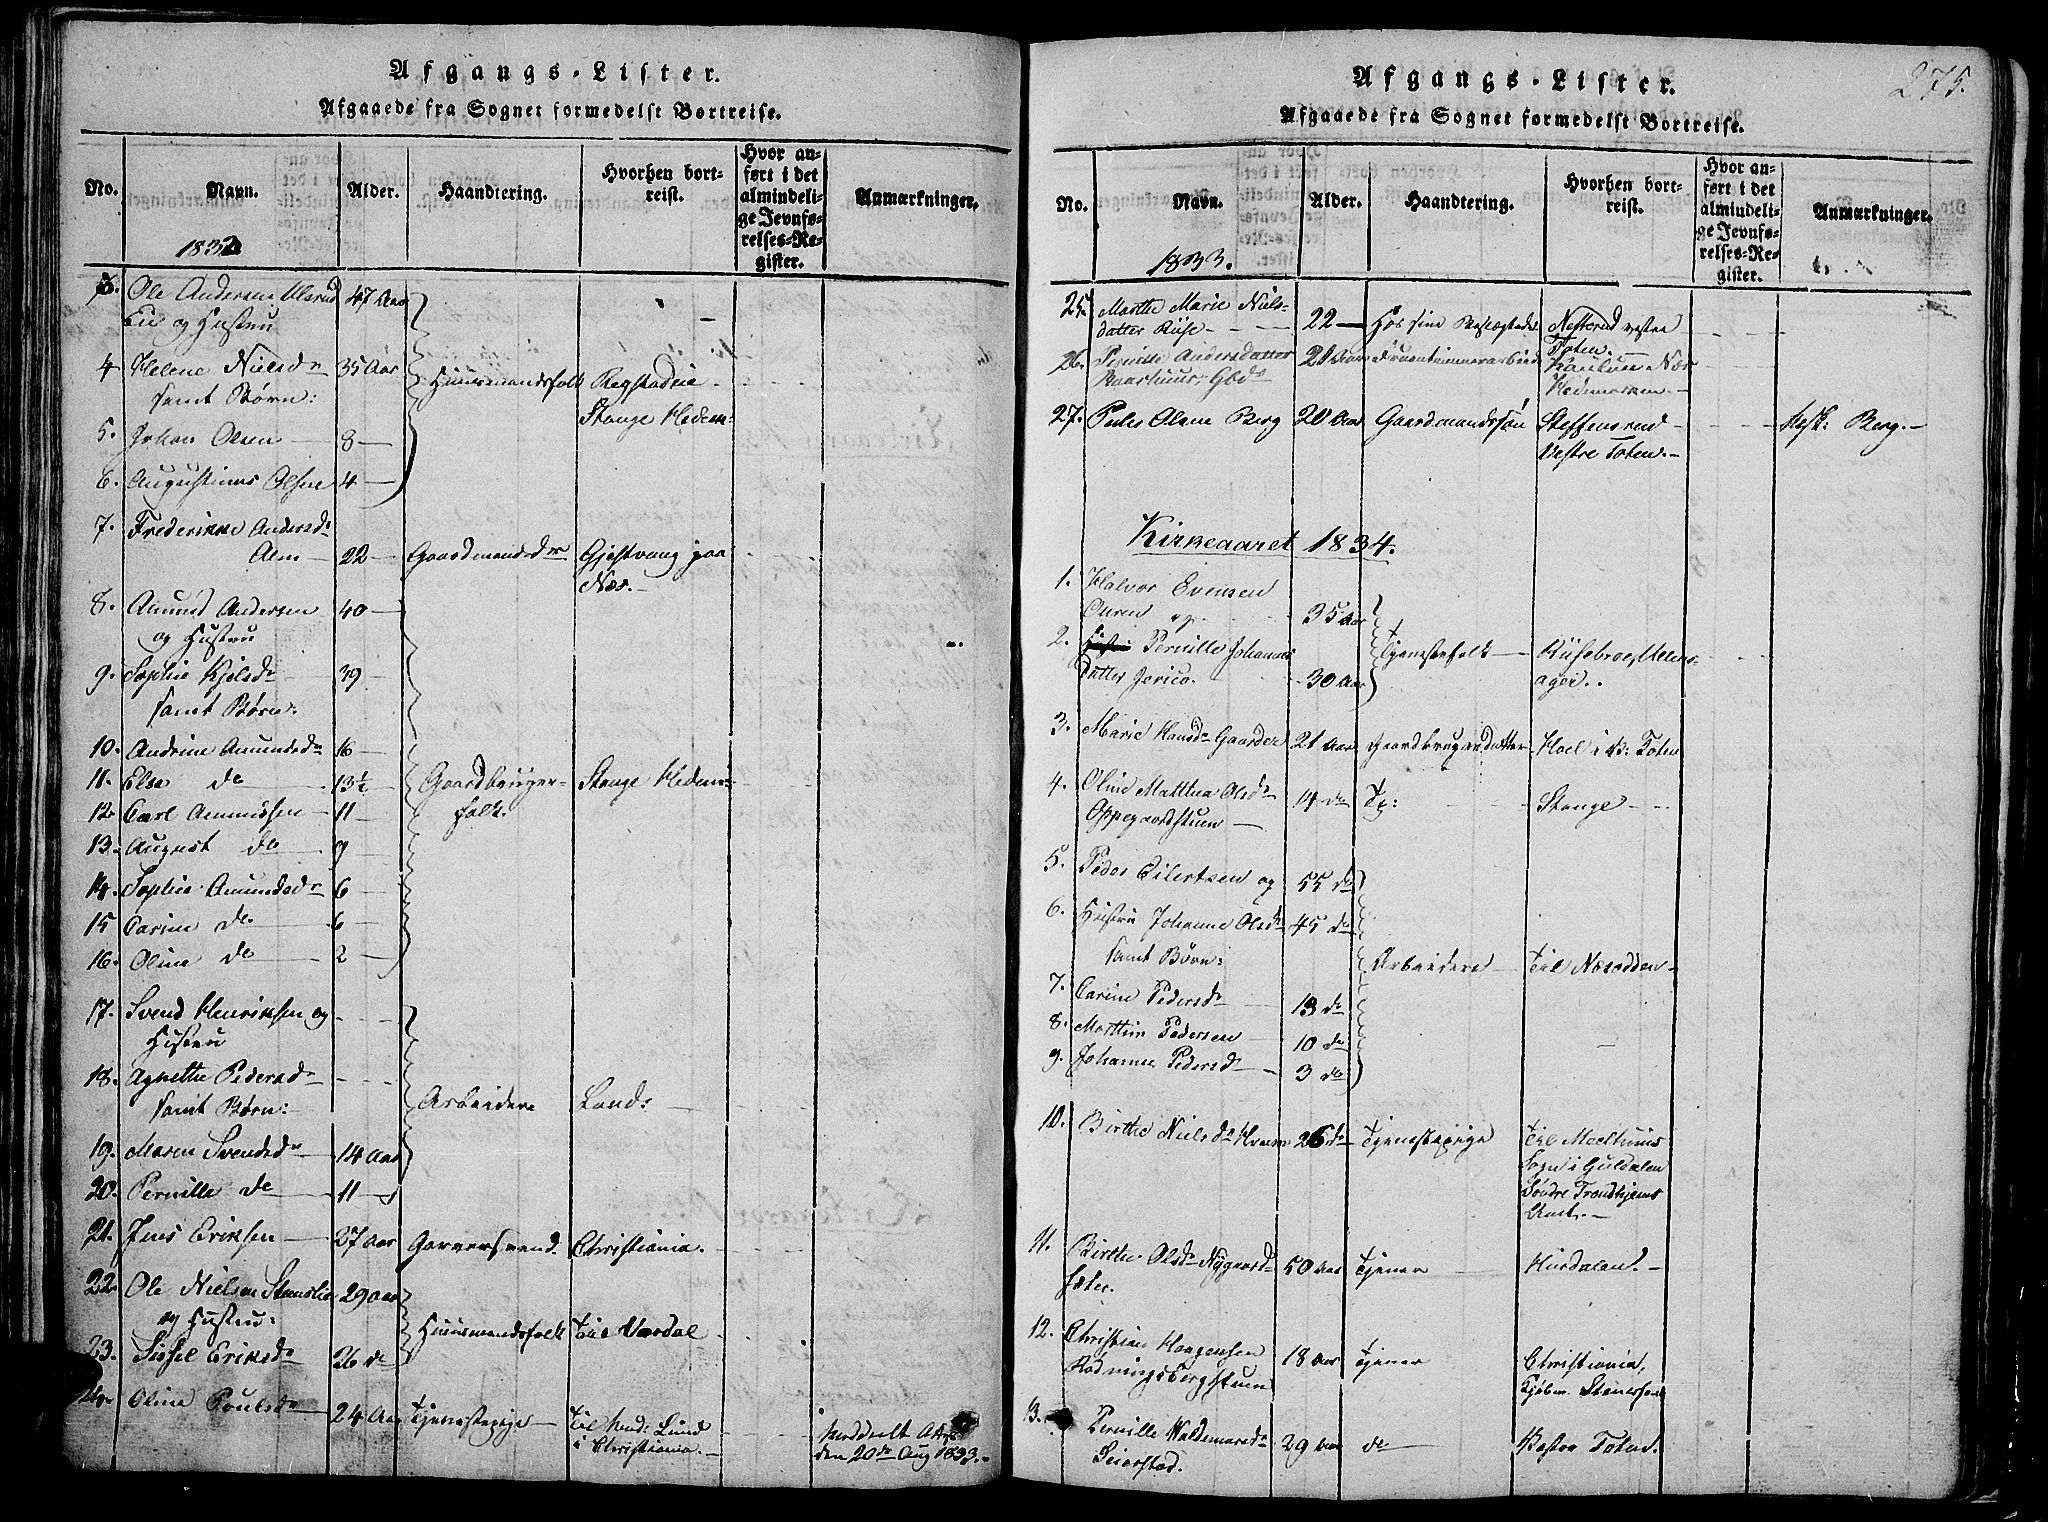 Afgangs-Lister.
Afgaaede fra Sognet formedelst Bortreise.
No. Navn. Alder. Haandtering. Hvorhen bort-reist. Hvor an-ført i det almindeli-ge Jevnfø-relses-Re-gister. Anmærkninger.
1832
3. Ole Andersen 47 Aar
og Hustru
4 Helene Nielsdr 35 Aar Huusmandsfolk
samt Børn: Stange Hedem:
5. Johan Olsen 8 —
6. Augustinus Olsen 4 —
7. Frederikke Andersdr
Alm 22 — Gaardmandsdr Gjestvang paa
Næs. —
8. Amund Andersen 40 —
og Hustru
9. Sophie Kjelsdr 39
samt Børn.
10. Andrine Amundsdr 16 —
11. Elsa do 13½ Gaardbruger- Stange Hedem:
12. Carl Amundsen 11 — folk.
13. August do 9 —
14. Sophie Amundsdr 6 —
15 Carine do 6 —
16. Oline do 2 —
17. Svend Henriksen og
Hustru
18. Agnethe Pedersdr
samt Børn: Arbeidere Land:
19. Maren Svendsdr 14 Aar
20. Pernille do 11 —
21. Jens Eriksen 27 Aar Garversvend. Christiania.
22. Ole Nielsen 29 Aar
og Hustru: Huusmandsfolk Til Vardal
23. Sissel Eriksdr 26 do
24. Oline Poulsdr 24 Aar Tjenestepige — Til Lund
i Christiania. — meddeelt Attest
den 20de Aug 1833. —
Afgangs-Lister. 275.
Afgaaede fra Sognet formedelst Bortreise.
No. Navn. Alder. Haandtering. Hvorhen bort-reist. Hvor an-ført i det almindeli-ge Jevnfø-relses-Re-gister. Anmærkninger.
1833.
25. Marthe Marie Niels-
datter 22 — Hos sine vestre
Toten.
26. Pernille Andersdatter Fruentimmerarbeid Næs
Hedemarken. —
27. Peder Olsen Berg 20 Aar Gaardmandssøn Steffensrud Berg. —
Vestre Toten. —
Kirkeaaret 1834.
1. Halvor Evensen
og 35 Aar
2. Hustru Pernille Johannes Tjenestefolk
datter Jerico. 30 Aar
3. Marie Hansdr Gaarder 21 Aar Gaardbrugerdatter Hoel i V: Toten
4. Oline Mathea Olsdr 14 do Tj: Stange
Oppegaardstuen
5. Peder Eilertsen og 55 do
6. Hustru Johanne Olsdr 45 do
samt Børn: Arbeidere Til Næsodden
7. Carine Pedersdr 13 do
8. Marthin Pedersen 10 do
9. Johanne Pedersdr 3 do
10. Birthe Nielsdr 26 do Tjenestepige Til
Sogn i Guldalen
Søndre Trondhjems
Amt. —
11. Birthe Olsdr Nygaard 50 Aar Tjener Hurdalen. —
12. Christian Haagensen 18 Aar Tjener Christiania,
Kjøbm. Steensen
13. Pernille Waldemarsdr 29 Aar do Vestre Toten.
Seierstad.